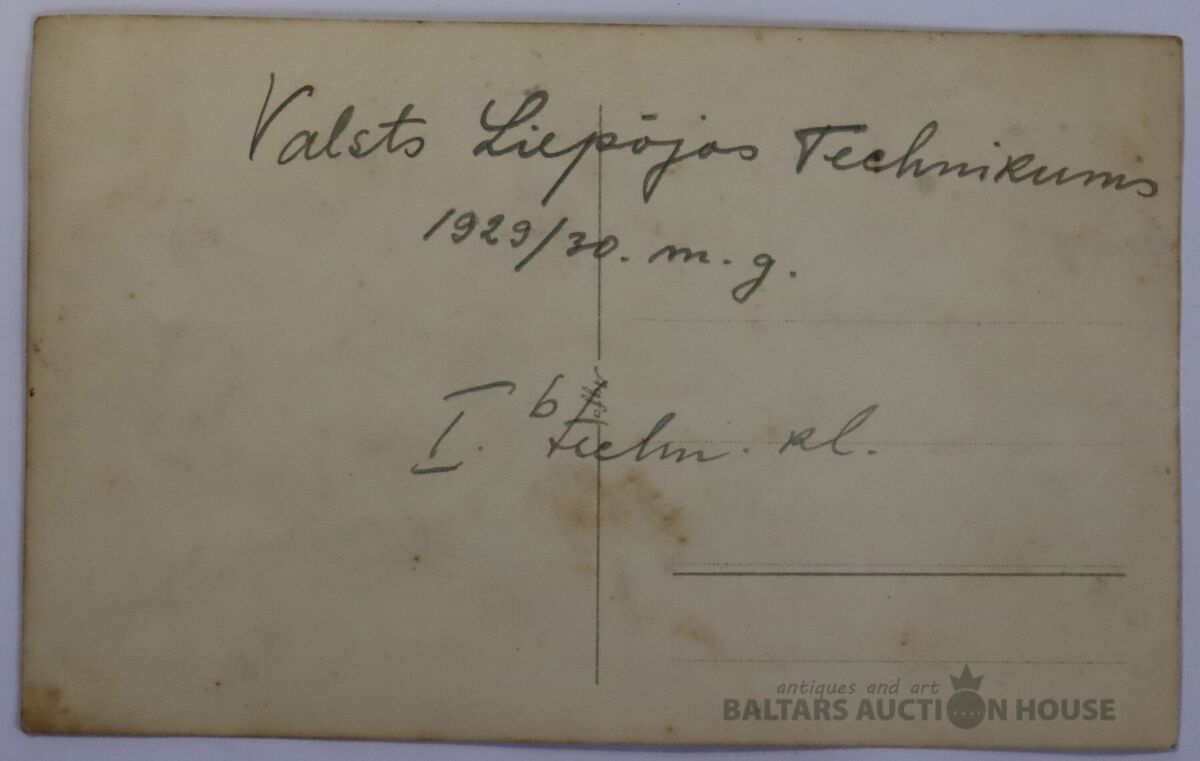 Valsts Liepājas Technikums
1929/30. m. g.
I. b techn. kl.
antiques and art
BALTARS AUCTION HOUSE